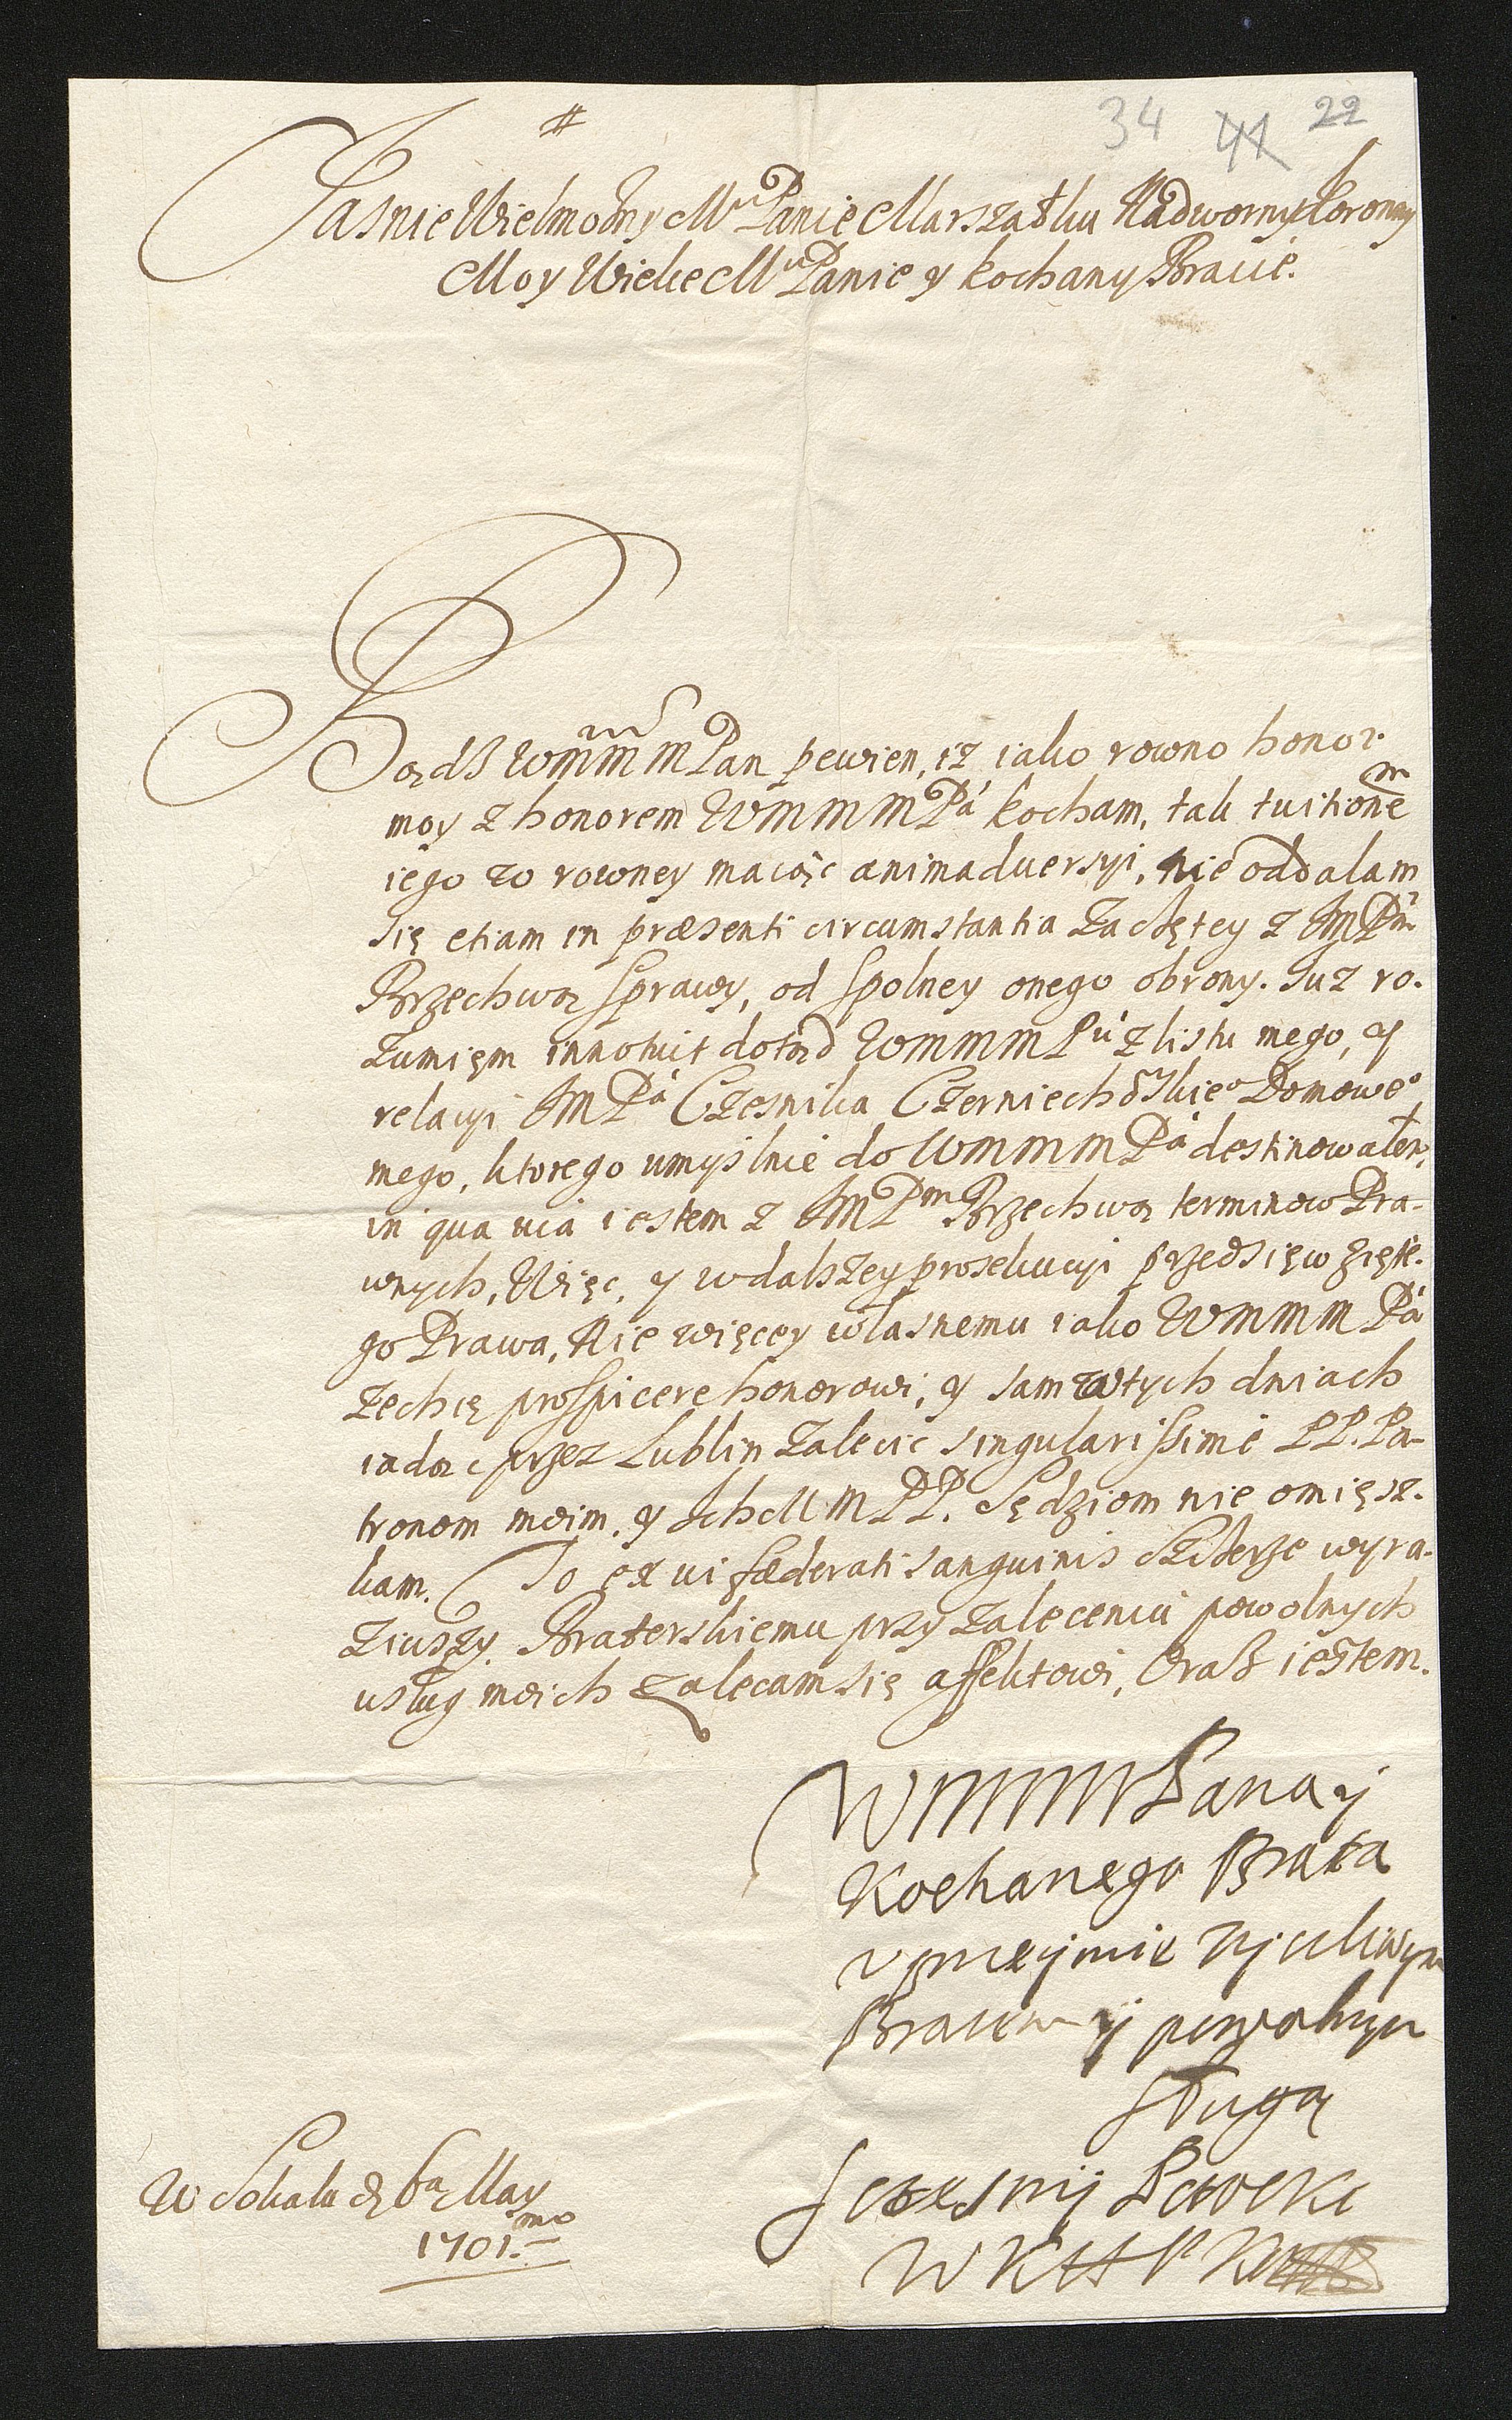 34 41 22
#
Jasnie Wielmożny Mci Panie Marszałku Nadworny Koronny
Moy Wielce Mci Panie y kochany Bracie.
Bądz WMMM Pan pewien, iz iako rowno honor
moy z honorem WMMM Pa kocham, tak tuitionem
iego w rowney maiąc animaduersyi, nie oddalam
się etiam in præsenti circumstantia Zaczętey z JM Pm
Brzechwą sprawy, od spolney onego obrony. Juz ro-
zumięm innotuit dotąd WMMM Pu z listu mego, y
relacyi JM Pa Czesnika Czerniechoskieo Domoweo
mego, ktorego umyslnie do WMMM Pa destinowałem,
in qua via iestem z JM Pm Brzechwą terminow Pra-
wnych, Więc, y w dalszey prosekucyi przedsięwzięte-
go Prawa, Nie więcey własnemu iako WMMM Pa
zechcę prospicere honorowi, y sam w tych dniach
iadąc przez Lublin zalecic singularissime PP. Pa-
tronom moim, y Ich M M PP. Sędziom nie omięsz-
kam. To ex vi fæderati sanguinis Szczerze wyra-
ziwszy. Braterskiemu przy zaleceniu powolnych
usług moich zalecam się affektowi, Oraz iestem.
WMMM Pana y
Kochanego Brata
Uprzeymie zyczliwym
Bratem y powolnym
sługą
W Sokalu d 6a May
1701.mo
WKHPK